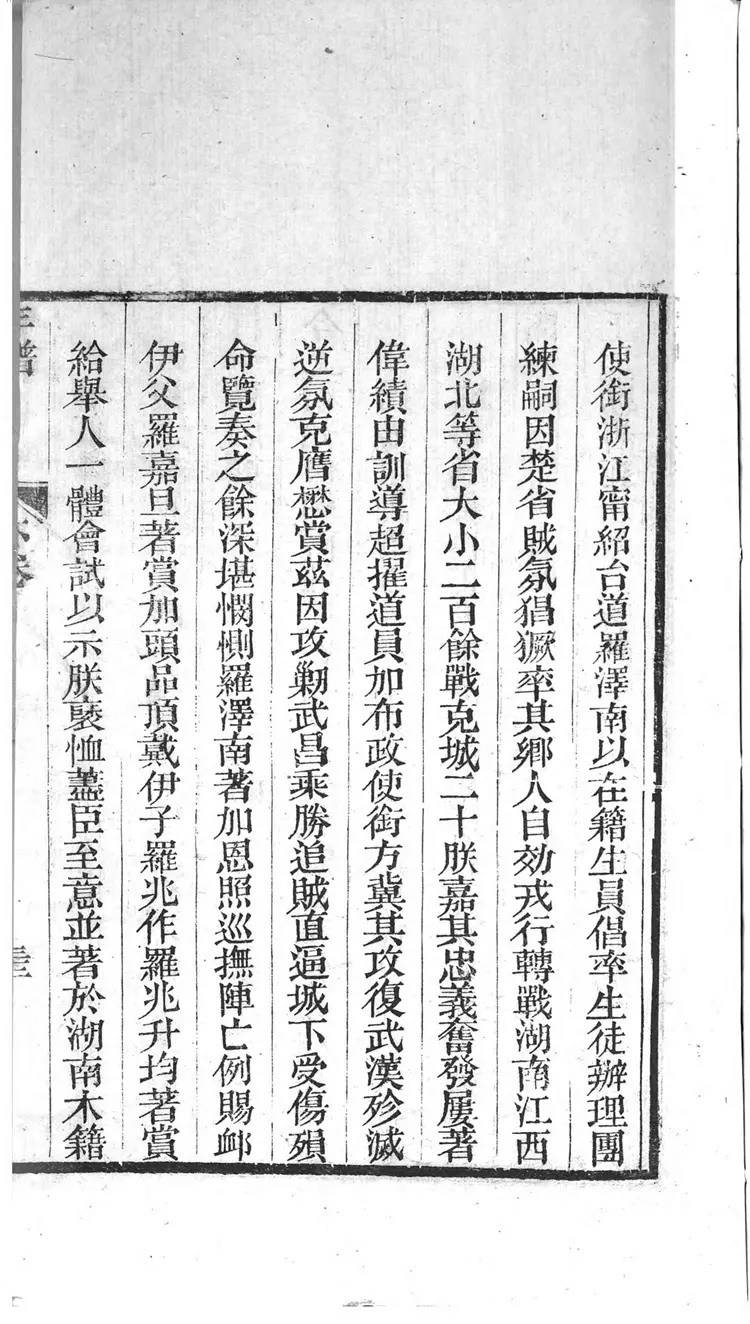 使銜浙江甯紹台道羅澤南以在籍生員倡率生徒辦理團
練嗣因楚省賊氛猖獗率其鄉人自効戎行轉戰湖南江西
湖北等省大小二百餘戰克城二十朕嘉其忠義奮發屢著
偉績由訓導超擢道員加布政使銜方冀其攻復武漢殄滅
逆氛克膺懋賞茲因攻勦武昌乘勝追賊直逼城下受傷殞
命覽奏之餘深堪憫惻羅澤南著加恩照巡撫陣亡例賜卹
伊父羅嘉旦著賞加頭品頂戴伊子羅兆作羅兆升均著賞
給舉人一體會試以示朕褒恤藎臣至意並著於湖南本籍
年譜